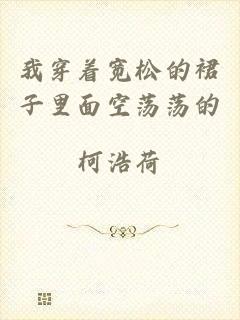 我穿着宽松的裙
子里面空荡荡的
柯浩荷